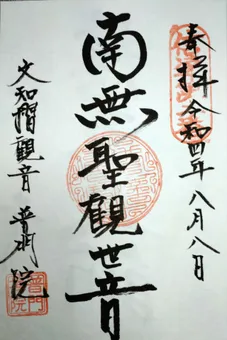 奉拝 令和四年八月八日
南無聖観世音
文知摺観音 普門院